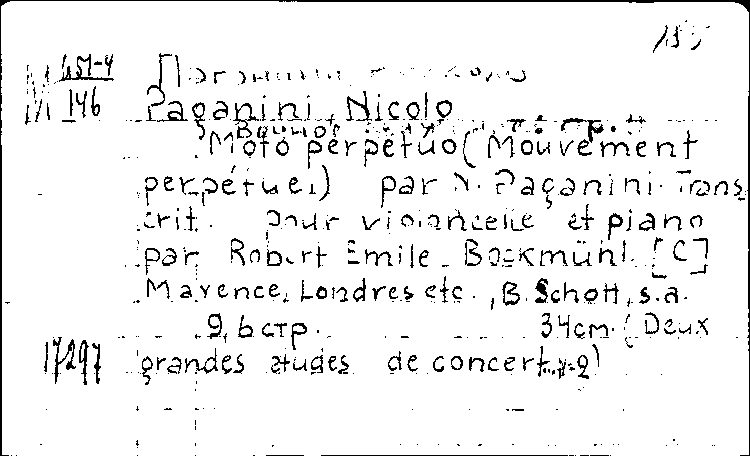 155
М 651-4
146
Паганини, Никколо
Paganini, Nicolo
Moto perpetuo (Mouvement
perpétuel) par N. Paganini. Trans
crit. pour violoncelle et piano
par Robert Emile Bockmühl. [C]
Mayence, Londres etc., B. Schott, s.a.
9, 6 стр. 34cm. (Deux
17297 grandes études de concert. 2)